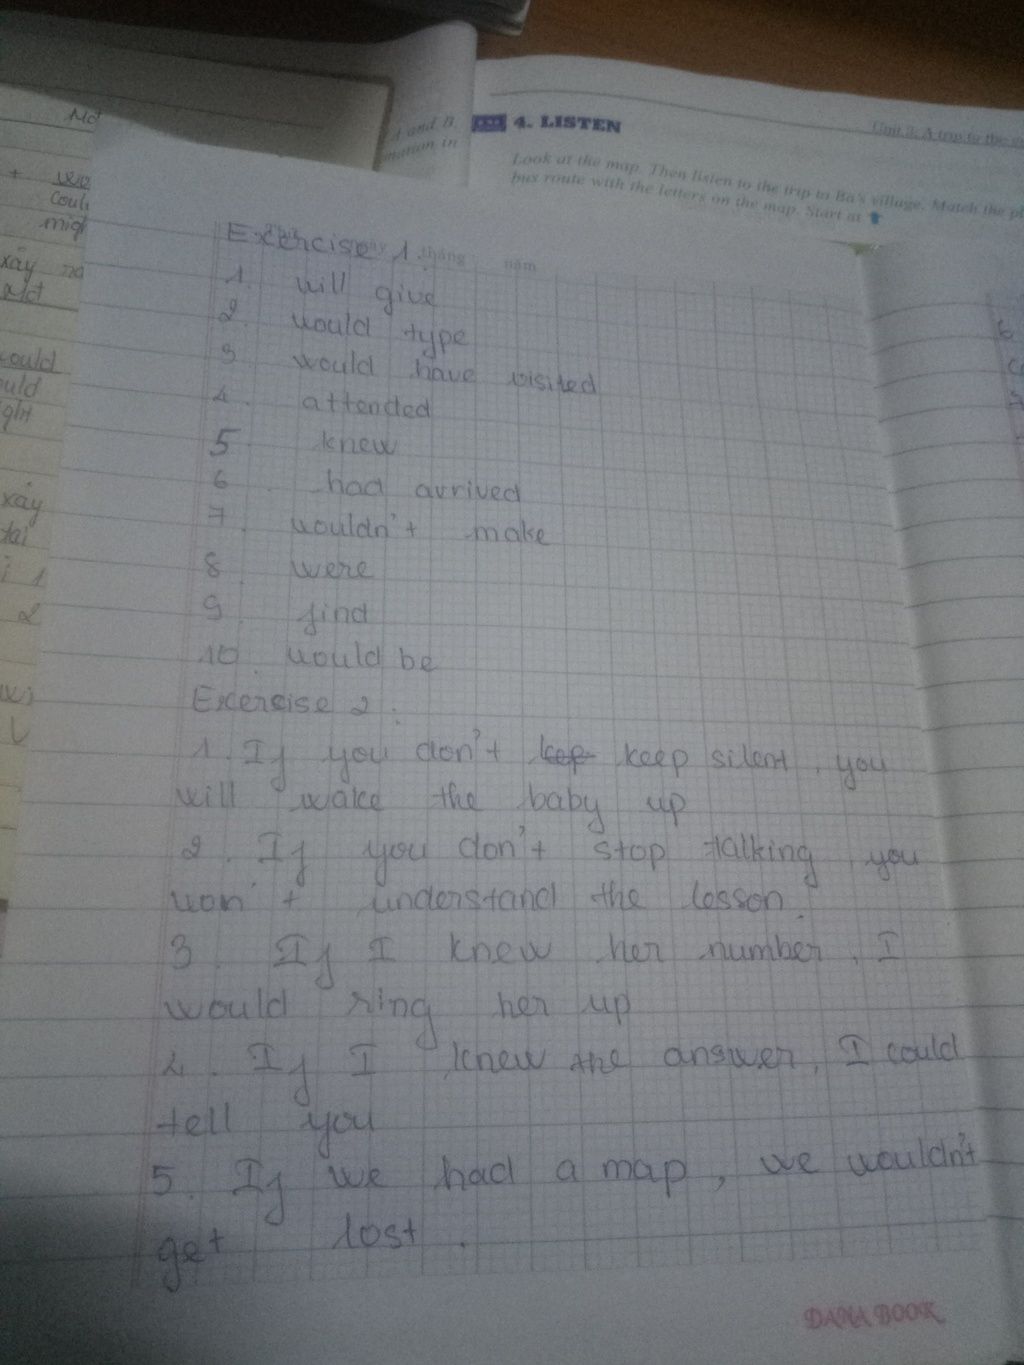 4. LISTEN
Unit 3. A trip to the
Look at the map. Then listen to the trip to Ba's village. Match the
bus route with the letters on the map. Start at
A and B.
mation in
xảy
could
uld
ght
xảy
tại
i 1
2
tháng năm
Exercise 1.
1. will give
2. would type
3 would have visited
4. attended
5 knew
6. had arrived
7. wouldn't make
8 were
9 find
10. would be
Exercise 2:
1. If you don't kep keep silent, you
will wake the baby up
2. If you don't stop talking, you
won't understand the lesson.
3. If I knew her number, I
would ring her up
4. If I knew the answer, I could
tell you
5. If we had a map, we wouldn't
get lost.
DANA BOOK